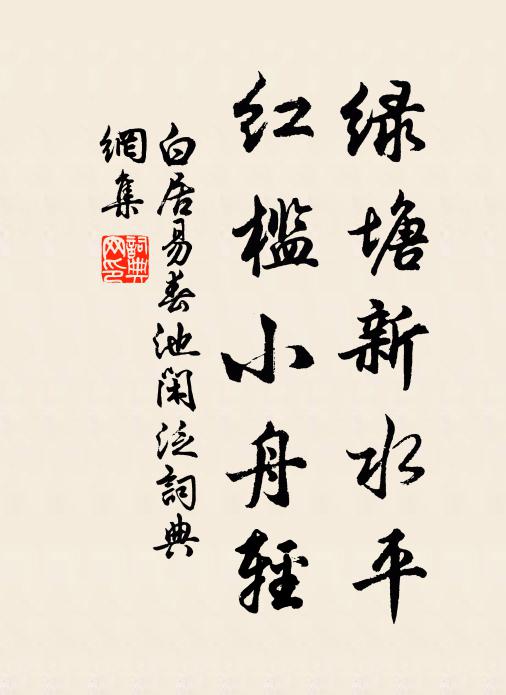 绿塘新水平
红槛小舟轻
白居易春池闲泛詞典
網集
詞典
网印